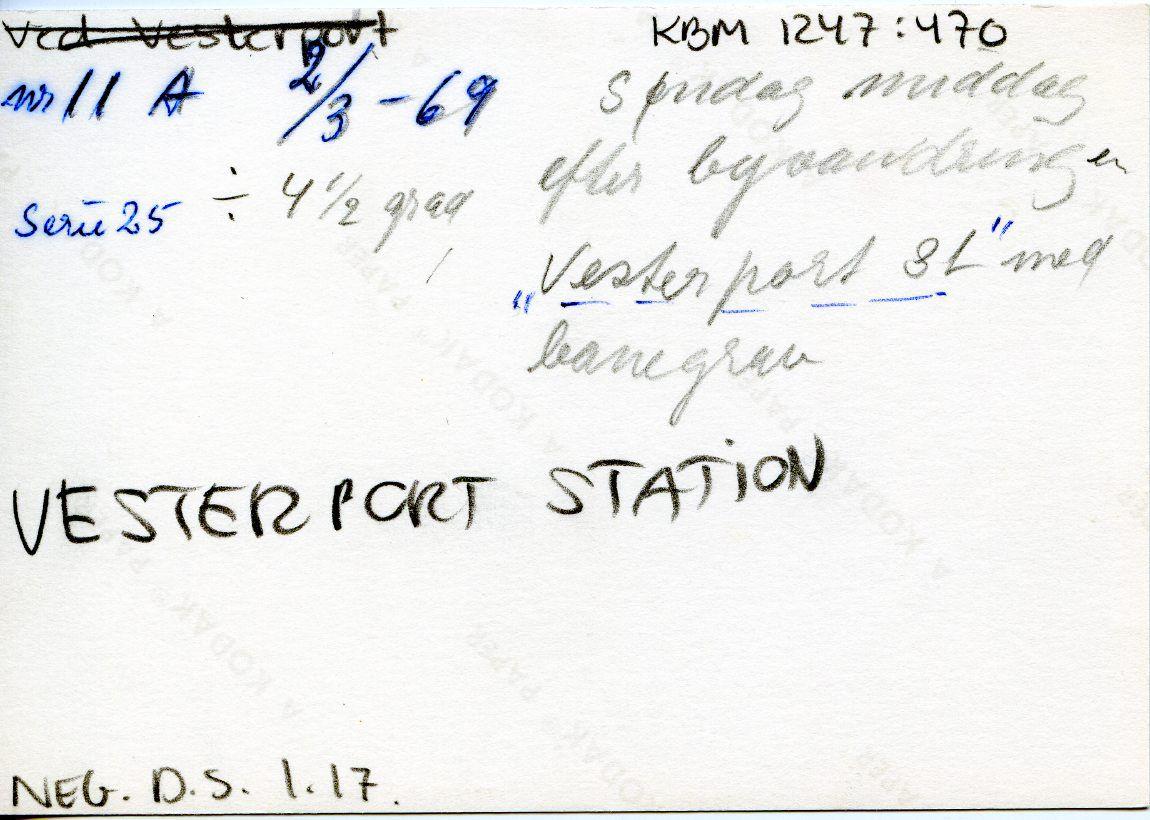 Ved Vesterport
KBM 1247:470
nr 11 A 2/3 - 69
Søndag middag
efter byvandringen
Serie 25 ÷ 4 1/2 grad
"Vesterport St" med
banegrav
VESTERPORT STATION
NEG. D.S. 1.17.
A KODAK® PAPER